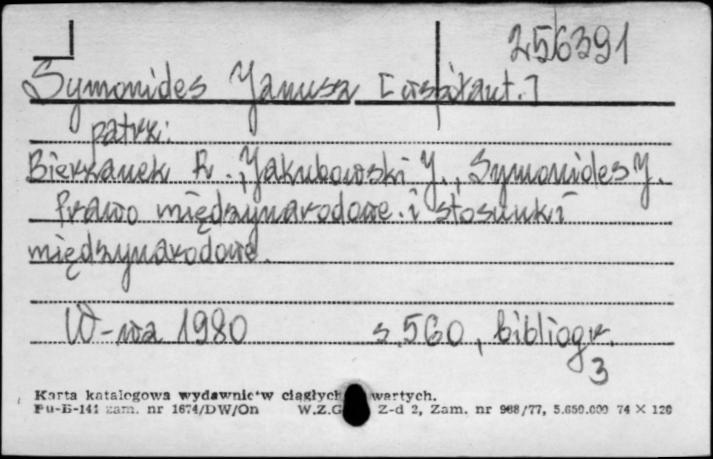 256391
Symonides Janusz [współaut.]
patrz:
Bierzanek R., Jakubowski J., Symonides J.
Prawo międzynarodowe i stosunki
międzynarodowe.
W-wa 1980 s. 560, bibliogr.
3
Karta katalogowa wydawnictw ciągłych wartych.
Pu-B-141 zam. nr 1674/DW/On W.Z.G Z-d 2, Zam. nr 988/77, 5.650.000 74 × 120